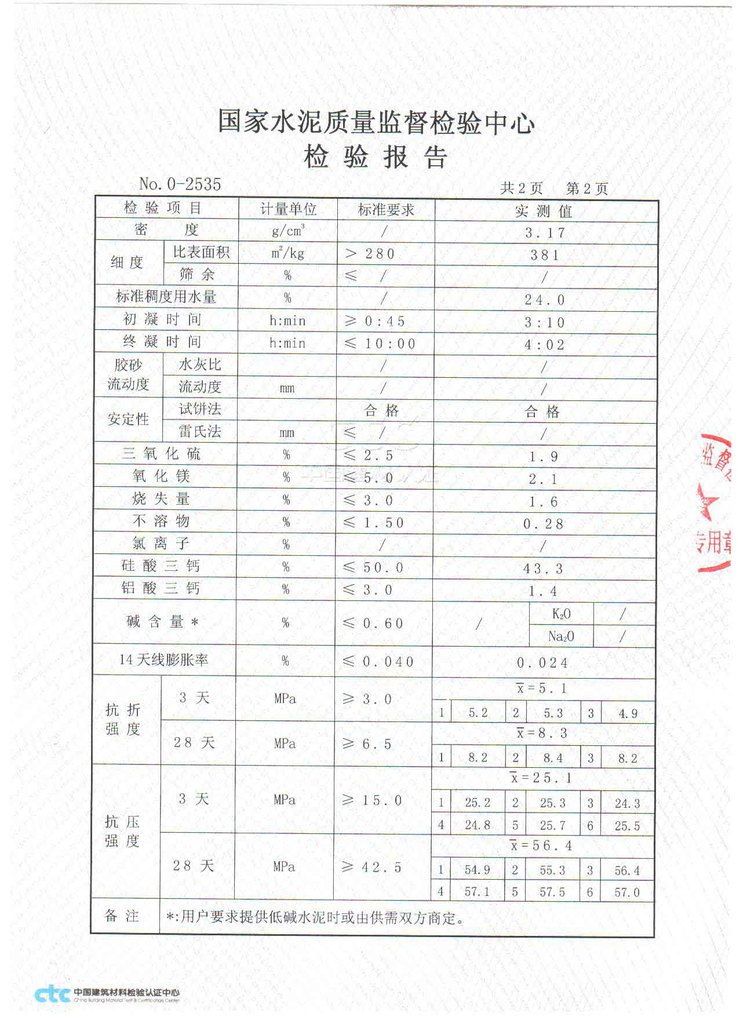 国家水泥质量监督检验中心
检 验 报 告
No. 0-2535
共 2 页 第 2 页
检 验 项 目 计量单位 标准要求 实 测 值
密 度 g/cm³ / 3.17
细 度 比表面积 m²/kg > 280 381
筛 余 % ≤ / /
标准稠度用水量 % / 24.0
初 凝 时 间 h:min ≥ 0:45 3:10
终 凝 时 间 h:min ≤ 10:00 4:02
胶砂流动度 水灰比 / /
流动度 mm / /
安定性 试饼法 合 格 合 格
雷氏法 mm ≤ / /
三 氧 化 硫 % ≤ 2.5 1.9
氧 化 镁 % ≤ 5.0 2.1
烧 失 量 % ≤ 3.0 1.6
不 溶 物 % ≤ 1.50 0.28
氯 离 子 % / /
硅 酸 三 钙 % ≤ 50.0 43.3
铝 酸 三 钙 % ≤ 3.0 1.4
碱 含 量 * % ≤ 0.60 / K₂O /
Na₂O /
14天线膨胀率 % ≤ 0.040 0.024
抗 折 强 度 3 天 MPa ≥ 3.0 x̄=5.1
1 5.2 2 5.3 3 4.9
28 天 MPa ≥ 6.5 x̄=8.3
1 8.2 2 8.4 3 8.2
抗 压 强 度 3 天 MPa ≥ 15.0 x̄=25.1
1 25.2 2 25.3 3 24.3
4 24.8 5 25.7 6 25.5
28 天 MPa ≥ 42.5 x̄=56.4
1 54.9 2 55.3 3 56.4
4 57.1 5 57.5 6 57.0
备 注 *:用户要求提供低碱水泥时或由供需双方商定。
监督
专用章
ctc 中国建筑材料检验认证中心
China Building Material Test & Certification Center